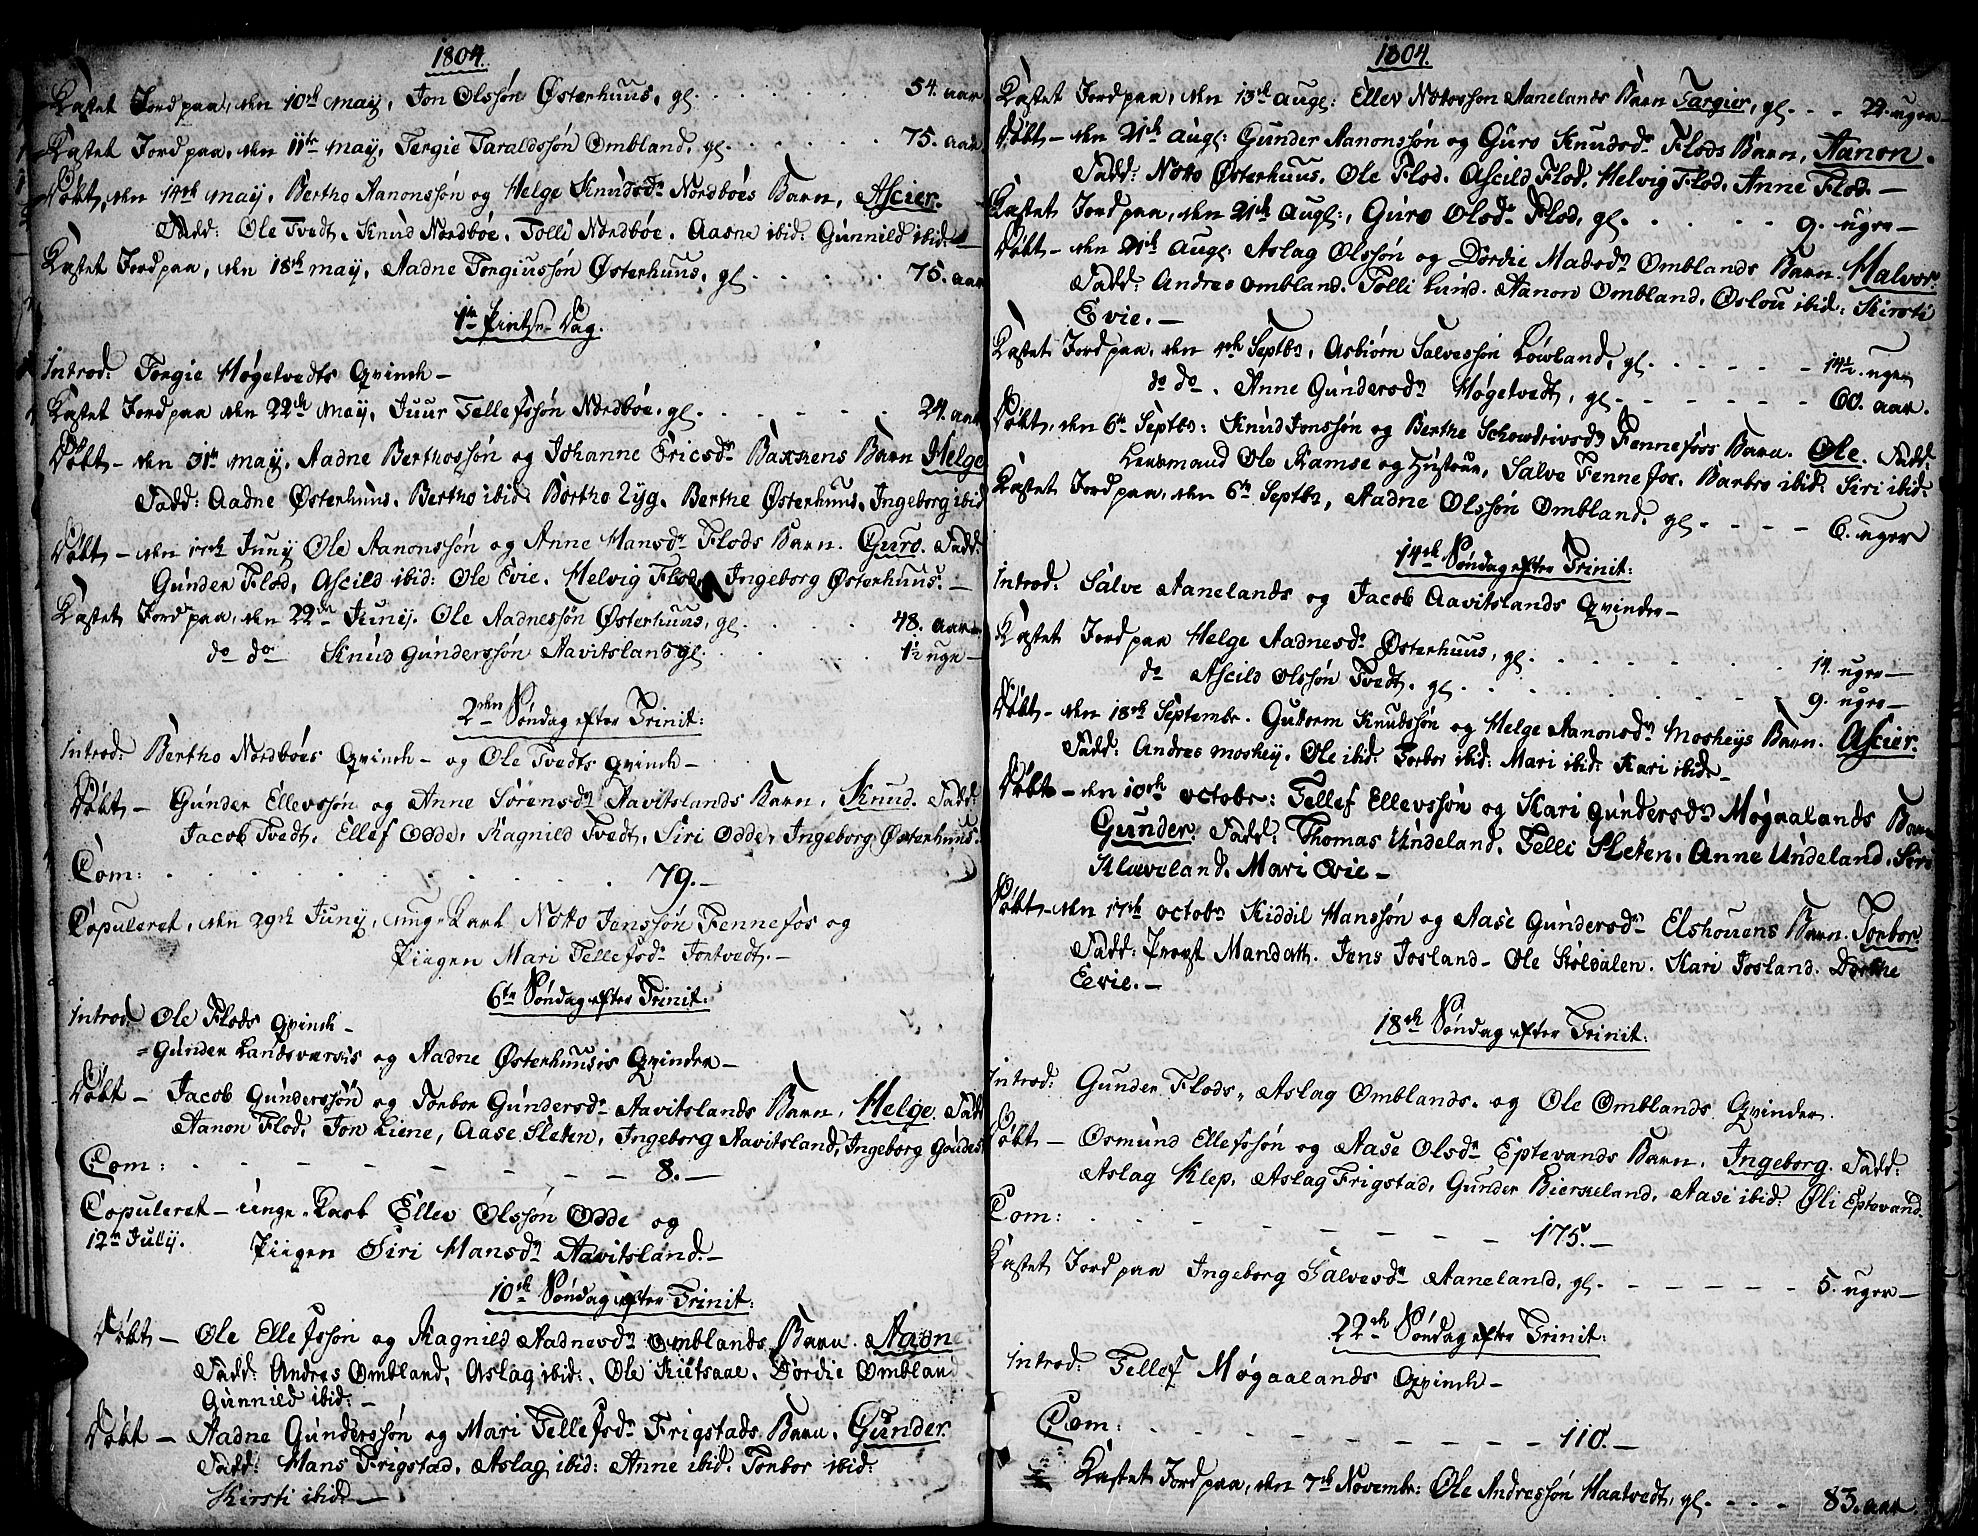 1804.
Kastet Jord paa, den 10de May, Jon Olssøn Østerhuus, gl. 54. aar
Kastet Jord paa, den 11te May, Tergie Taraldssøn Ombland, gl. 75. aar
Døbt, den 14de May, Bertho Aanonssøn og Helge Knudsdr Nordbøes Barn, Ascier.
Fadd: Ole Tvedt. Knud Nordbøe. Tolli Nordbøe. Aasne ibid: Gunnild ibid:
Kastet Jord paa, den 18de May, Aadne Torgiussøn Østerhuus, gl. 75. aar
1te Pintse-Dag.
Introd: Torgie Høgetvedts Qvinde –
Kastet Jord paa den 22de May, Juur Tellefssøn Nordbøe, gl. 24. aar
Døbt – den 31te May, Aadne Berthossøn og Johanne Ericsdr Barn Helge
Fadd: Aadne Østerhuus. Bertho ibid: Bertho Lyg. Berthe Østerhuus, Ingeborg ibid
Døbt – den 17de Juny Ole Aanonssøn og Anne Hansdr Flods Barn. Guro. Fadd:
Gunder Flod, Ascild ibid: Ole Evie. Helvig Flod, Ingeborg Østerhuus. –
Kastet Jord paa, den 22de Juny. Ole Aadnessøn Østerhuus, gl. 48. aar
do do Knud Gunderssøn Aavitsland gl. 1½ uge –
2den Søndag efter Trinit:
Introd: Bertho Nordbøes Qvinde – og Ole Tvedts Qvinde –
Døbt – Gunder Ellevssøn og Anne Sørensdr Aavitslands Barn, Knud. Fadd:
Jacob Tvedt. Ellef Odde, Ragnild Tvedt, Siri Odde, Ingeborg Østerhuus.
Com: 79. –
Copuleret, den 29de Juny, unge Karl Notto Jenssøn Fennefos og
Piigen Mari Tellefsdr Tortvedt. –
6te Søndag efter Trinit:
Introd: Ole Flods Qvinde –
= Gunder Landsværks og Aadne Østerhuusis Qvinder –
Døbt – Jacob Gunderssøn og Torbor Gundersdr Aavitslands Barn, Helge. Fadd
Aanon Flod, Jon Liene, Aase Sleten, Ingeborg Aavitsland, Ingeborg
Com: 8. –
Copuleret – unge Karl Ellev Olssøn Odde og
12te July. Piigen Siri Hansdr Aavitsland. –
10de Søndag efter Trinit:
Døbt – Ole Ellefssøn og Ragnild Aadnesdr Omblands Barn. Aadne
Fadd: Andres Ombland, Aslag ibid:, Ole Kietsaae. Dordie Ombland
Gunnild ibid: –
Døbt – Aadne Gunderssøn og Mari Tellefsdr Frigstads Barn, Gunder.
Fadd: Hans Frigstad. Aslag ibid: Anne ibid. Torbor ibid:
Kirsti ibid: –
1804.
Kastet Jord paa, den 13de Augl: Ellev Nottossøn Aanelands Barn Targier, gl. 22. uger –
Døbt – den 21de Augl: Gunder Aanonssøn og Guro Knudsdr Flods Barn, Aanon.
Fadd: Notto Østerhuus. Ole Flod. Ascild Flod. Helvig Flod. Anne Flod. –
Kastet Jord paa, den 21de Augl:, Guro Olsdr Flod, gl. 9. uger –
Døbt – den 21de Augl: Aslag Olssøn og Dordie Madsdr Omblands Barn Halvor.
Fadd: Andres Ombland. Tolli Lund. Aanon Ombland, Oslou ibid: Kirsti
Evie. –
Kastet Jord paa, den 4de Septbr, Asbiørn Salvessøn Løwland, gl. 14½. uger
do do. Anne Gundersdr Høgetvedt, gl. 60. aar.
Døbt, den 6te Septbr: Knud Jonssøn og Berthe Fennefoss Barn. Ole. Fadd:
Lensmand Ole Ramse og Hustrue, Salve Fennefos. Barbro ibid: Siri ibid:
Kastet Jord paa, den 6te Septbr, Aadne Olssøn Ombland, gl. 6. uger
14de Søndag efter Trinit:
Introd: Salve Aanelands og Jacob Aavitslands Qvinder –
Kastet Jord paa Helge Aadnesdr Østerhuus, gl. 14. uger –
do Ascild Olssøn Tvedt. gl. 9. uger –
Døbt – den 18de Septembr. Guttorm Knudssøn og Helge Aanonsdr Mosheys Barn. Ascier.
Fadd: Andres Moshey. Ole ibid: Torbor ibid: Mari ibid: Kari ibid: –
Døbt – den 10de Octobr: Tellef Ellevssøn og Kari Gundersdr Høgaalands Barn
Gunder. Fadd: Thomas Undeland. Telli Sleten. Anne Undeland. Siri
Klaveland. Mari Evie –
Døbt – den 17de Octobr Kiddil Hanssøn og Aase Gundersdr Elshouens Barn. Torbor.
Fadd: Provst Mandath. Jens Josland – Ole Støldalen. Kari Josland. Dorthe
Eevie. –
18de Søndag efter Trinit:
Introd: Gunder Flods, Aslag Omblands, og Ole Omblands Qvinder.
Døbt – Osmund Ellefssøn og Aase Olsdr Eptevands Barn. Ingeborg. Fadd:
Aslag Klep. Aslag Frigstad. Gunder Bierkeland. Aase ibid: Øli Eptevand.
Com: 175. –
Kastet Jord paa Ingeborg Salvesdr Aaneland, gl. 5. uger –
22de Søndag efter Trinit:
Introd: Tellef Høgaalands Qvinde –
Com: 110. –
Kastet Jord paa, den 7de Novembr: Ole Andressøn Haatvedt, gl. 83. aar